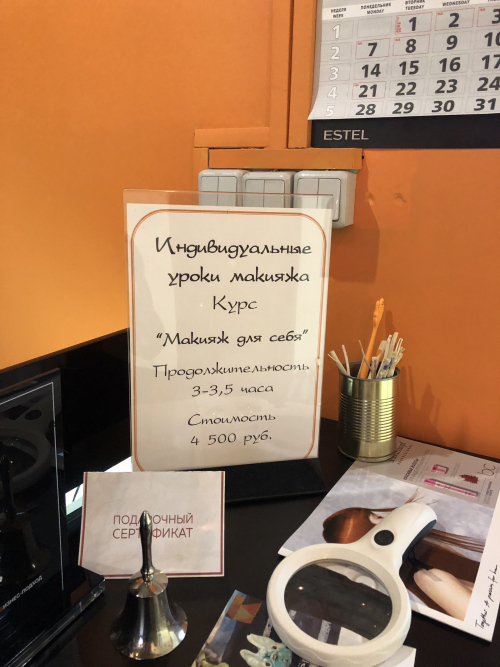 НЕДЕЛЯ ПОНЕДЕЛЬНИК ВТОРНИК СРЕДА
WEEK MONDAY TUESDAY WEDNESDAY
1 1 2 3
2 7 8 9 10
3 14 15 16 17
4 21 22 23 24
5 28 29 30 31
ESTEL
Индивидуальные
уроки макияжа
Курс
“Макияж для себя”
Продолжительность
3-3,5 часа
Стоимость
4 500 руб.
ПОДАРОЧНЫЙ
СЕРТИФИКАТ